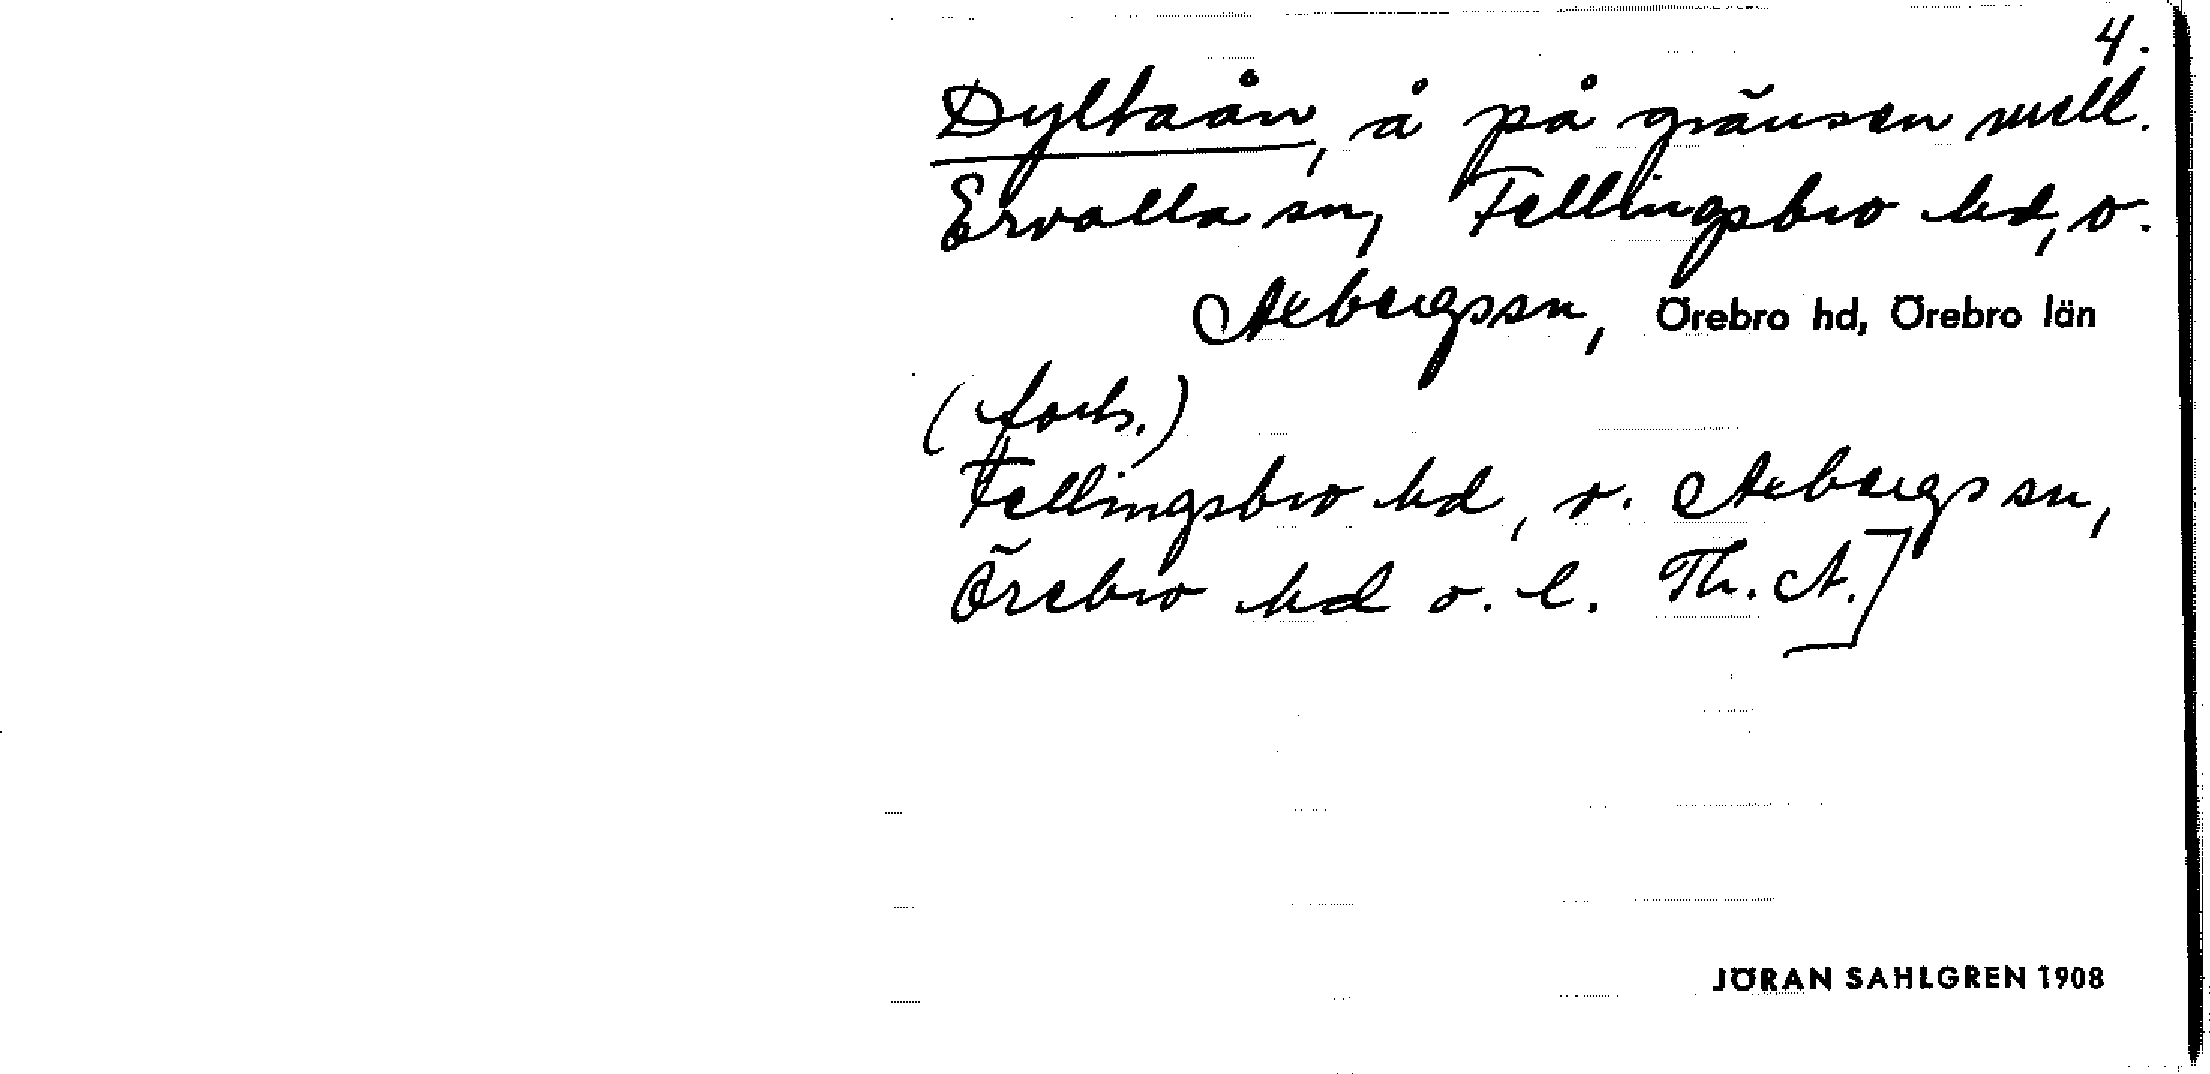 4.
Dyltaån, å på gränsen mell.
Ervalla sn, Fellingsbro hd, o.
Axbergs sn, Örebro hd, Örebro län
(forts.)
Fellingsbro hd, o. Axbergs sn,
Örebro hd o. l. Th. A.]
JÖRAN SAHLGREN 1908